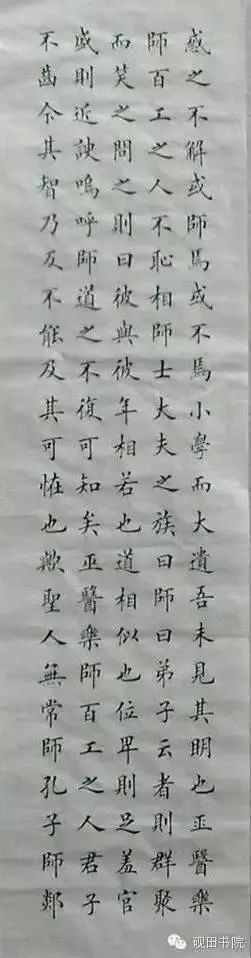 惑之不解或師焉或不焉小學而大遺吾未見其明也巫醫樂
師百工之人不恥相師士大夫之族曰師曰弟子云者則群聚
而笑之問之則曰彼與彼年相若也道相似也位卑則足羞官
盛則近諛嗚呼師道之不復可知矣巫醫樂師百工之人君子
不齒今其智乃反不能及其可怪也歟聖人無常師孔子師郯
砚田书院